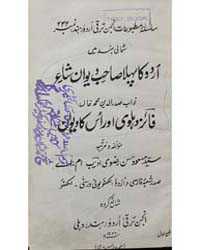 سلسلۂ مطبوعات انجمن ترقی اردو (ہند) نمبر ۲۳۲
شمالی ہند میں
اردو کا پہلا صاحبِ دیوان شاعر
نواب صدرالدین محمد خاں
فائز دہلوی اور اُس کا دیوان
مؤلفہ و مرتبہ
سید مسعود حسن رضوی ادیب ایم۔اے
صدر شعبۂ فارسی و اردو لکھنؤ یونیورسٹی، لکھنؤ
شائع کردہ
انجمن ترقی اردو (ہند) دہلی